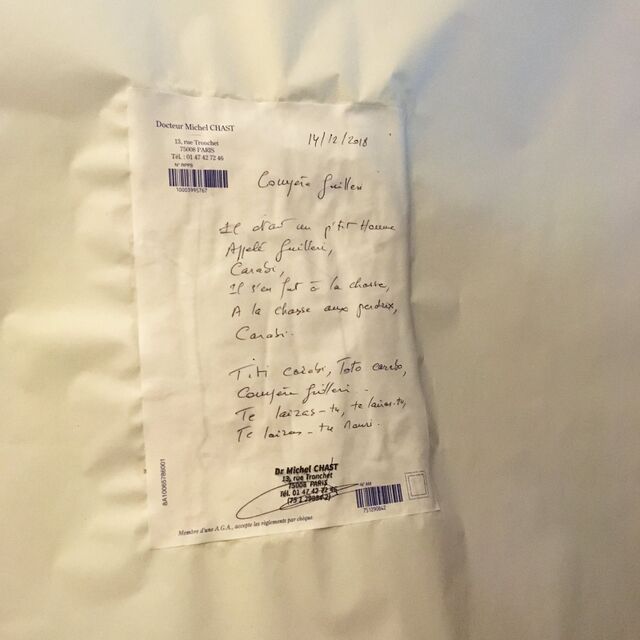 Docteur Michel CHAST
13, rue Tronchet
75008 PARIS
Tél : 01 47 42 72 46
N° RPPS
10003995767
14/12/2018
Compère Guilleri
Il était un p'tit Homme
Appelé Guilleri,
Carabi,
Il s'en fut à la chasse,
A la chasse aux perdrix,
Carabi.
Titi carabi, Toto carabo,
Compère Guilleri.
Te lairas-tu, te lairas-tu,
Te lairas-tu mouri.
Dr Michel CHAST
13, rue Tronchet
75008 PARIS
Tél. 01 47 42 72 46
N° AM
751290842
8A10065786001
Membre d'une A.G.A., accepte les règlements par chèque